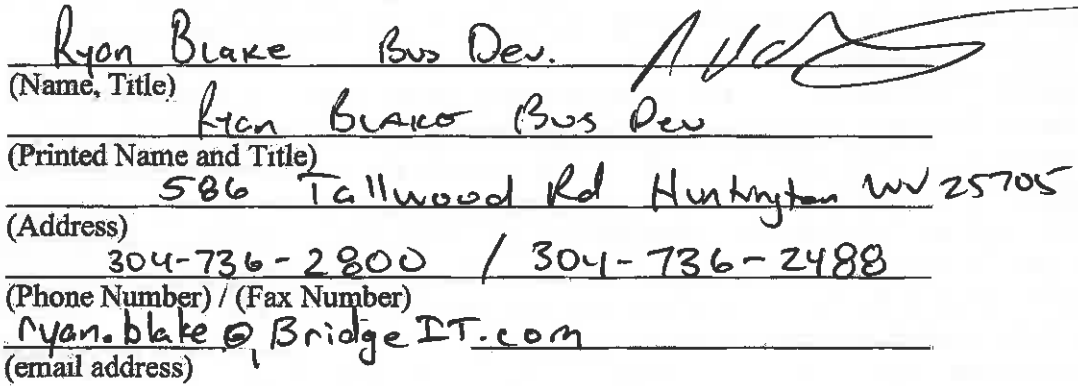 Ryan Blake Bus Dev.
(Name, Title)
Ryan Blake Bus Dev
(Printed Name and Title)
586 Tallwood Rd Huntington WV 25705
(Address)
304-736-2800 / 304-736-2488
(Phone Number) / (Fax Number)
ryan.blake@BridgeIT.com
(email address)